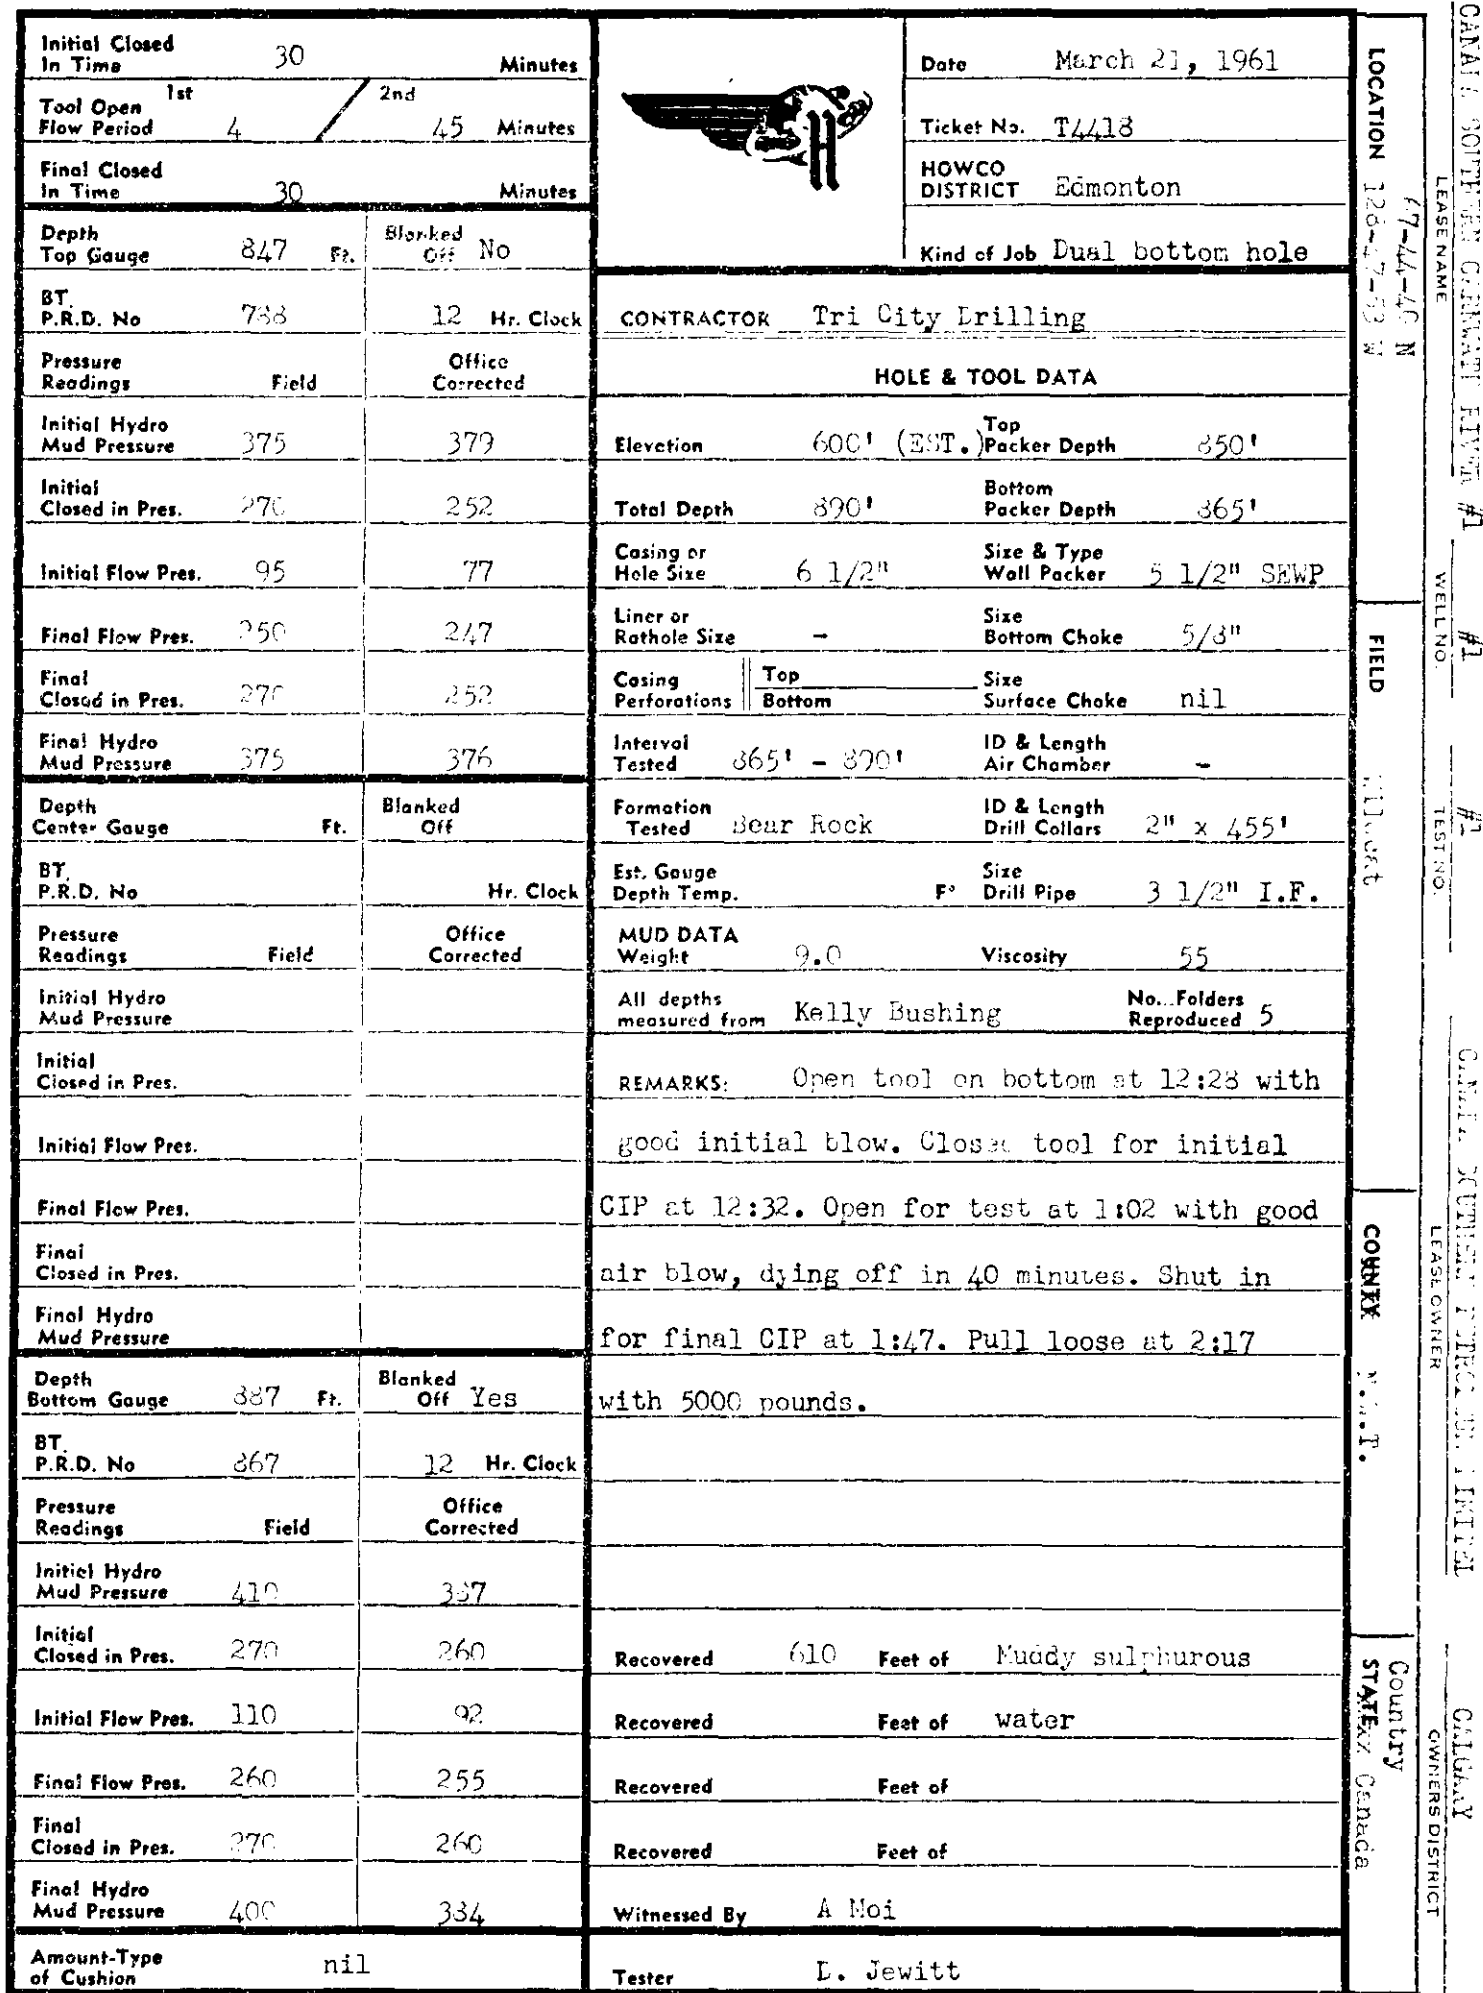 Initial Closed In Time 30 Minutes
Tool Open Flow Period 1st 4 / 2nd 45 Minutes
Final Closed In Time 30 Minutes
Depth Top Gauge 847 Ft. Blanked Off No
BT. P.R.D. No 788 12 Hr. Clock
Pressure Readings Field Office Corrected
Initial Hydro Mud Pressure 375 379
Initial Closed in Pres. 270 252
Initial Flow Pres. 95 77
Final Flow Pres. 250 247
Final Closed in Pres. 270 252
Final Hydro Mud Pressure 375 376
Depth Center Gauge Ft. Blanked Off
BT. P.R.D. No Hr. Clock
Pressure Readings Field Office Corrected
Initial Hydro Mud Pressure
Initial Closed in Pres.
Initial Flow Pres.
Final Flow Pres.
Final Closed in Pres.
Final Hydro Mud Pressure
Depth Bottom Gauge 887 Ft. Blanked Off Yes
BT. P.R.D. No 867 12 Hr. Clock
Pressure Readings Field Office Corrected
Initial Hydro Mud Pressure 410 387
Initial Closed in Pres. 270 260
Initial Flow Pres. 110 92
Final Flow Pres. 260 255
Final Closed in Pres. 270 260
Final Hydro Mud Pressure 400 384
Amount-Type of Cushion nil
H
Date March 21, 1961
Ticket No. T4418
HOWCO DISTRICT Edmonton
Kind of Job Dual bottom hole
CONTRACTOR Tri City Drilling
HOLE & TOOL DATA
Elevation 600' (EST.) Top Packer Depth 850'
Total Depth 890' Bottom Packer Depth 865'
Casing or Hole Size 6 1/2" Size & Type Wall Packer 5 1/2" SEWP
Liner or Rathole Size - Size Bottom Choke 5/8"
Casing Perforations Top Bottom Size Surface Choke nil
Interval Tested 865' - 890' ID & Length Air Chamber -
Formation Tested Bear Rock ID & Length Drill Collars 2" x 455'
Est. Gauge Depth Temp. F° Size Drill Pipe 3 1/2" I.F.
MUD DATA Weight 9.0 Viscosity 55
All depths measured from Kelly Bushing No. Folders Reproduced 5
REMARKS: Open tool on bottom at 12:28 with
good initial blow. Closed tool for initial
CIP at 12:32. Open for test at 1:02 with good
air blow, dying off in 40 minutes. Shut in
for final CIP at 1:47. Pull loose at 2:17
with 5000 pounds.
Recovered 610 Feet of Muddy sulphurous
Recovered Feet of water
Recovered Feet of
Recovered Feet of
Witnessed By A Moi
Tester L. Jewitt
LOCATION 67-44-46 N
128-47-53 W
FIELD
COUNTY N.W.T.
Country
STATE Canada
#1
LEASE NAME
#1
WELL NO.
TEST NO.
LIMITED
LEASE OWNER
CALGARY
OWNERS DISTRICT